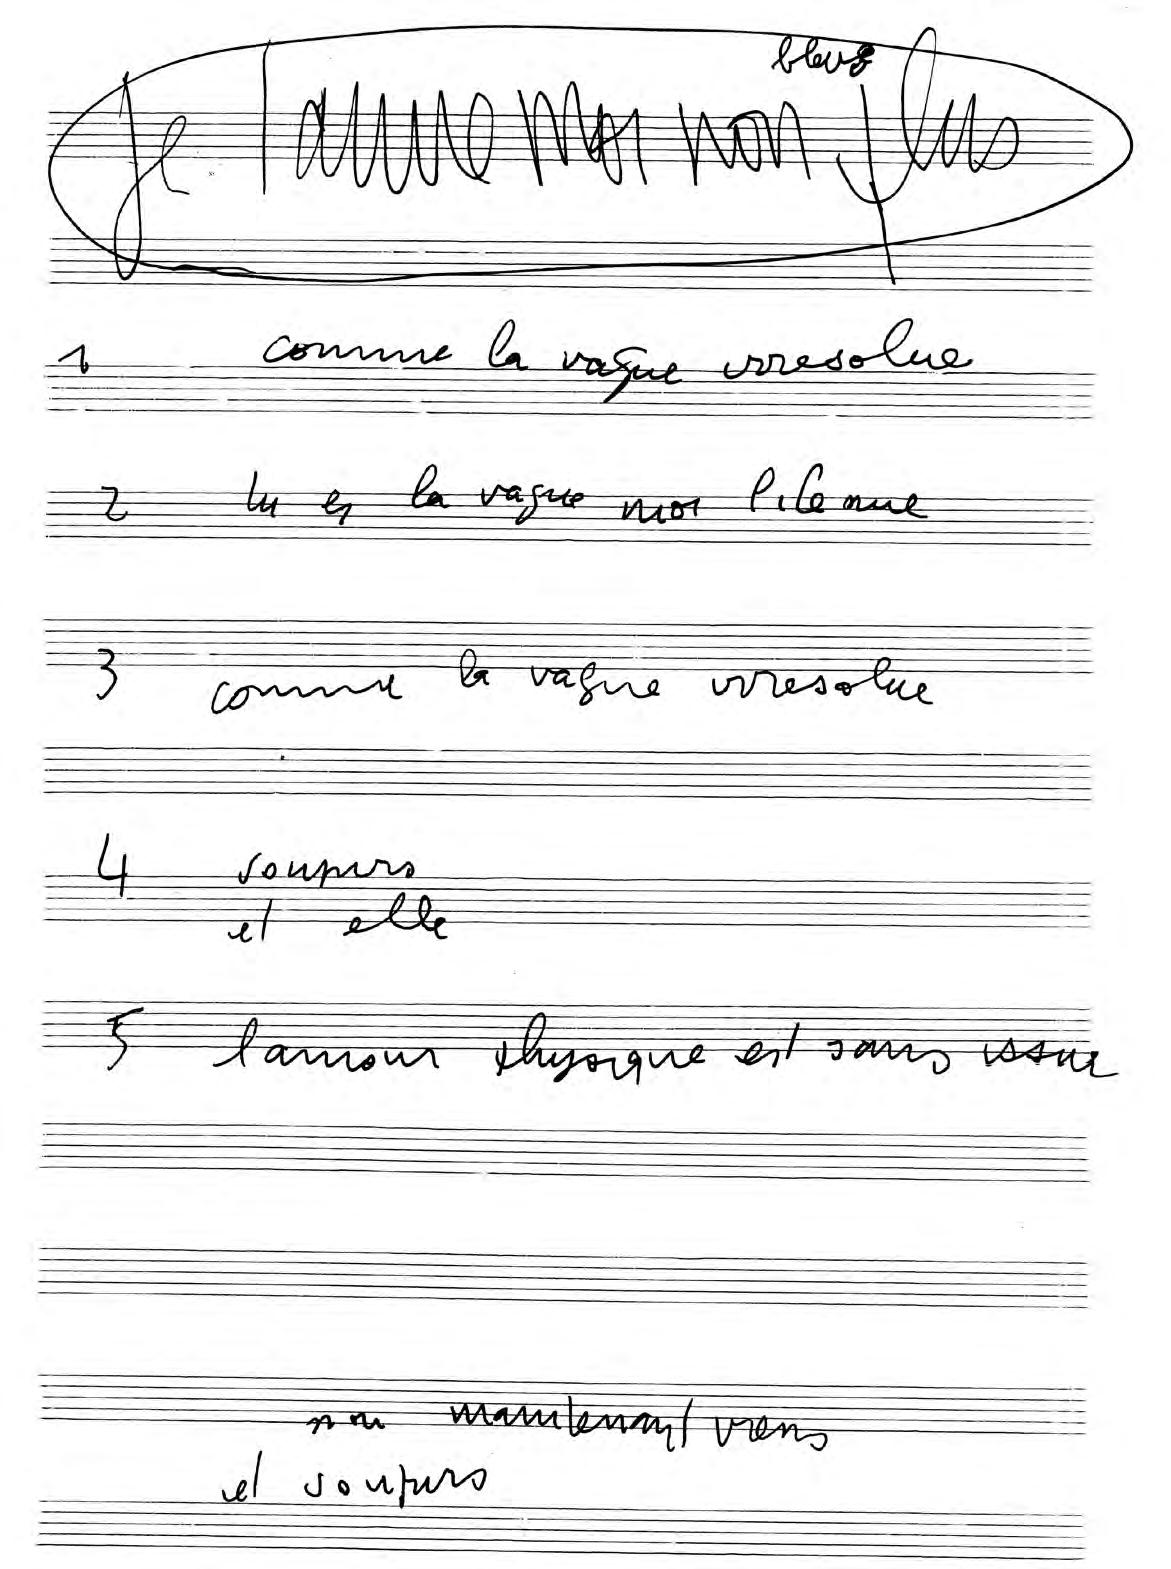 bleus
Je t'aime moi non plus
1 comme la vague irresolue
2 tu es la vague moi l'ile nue
3 comme la vague irresolue
4 soupirs
et elle
5 l'amour physique est sans issue
non maintenant viens
et soupirs